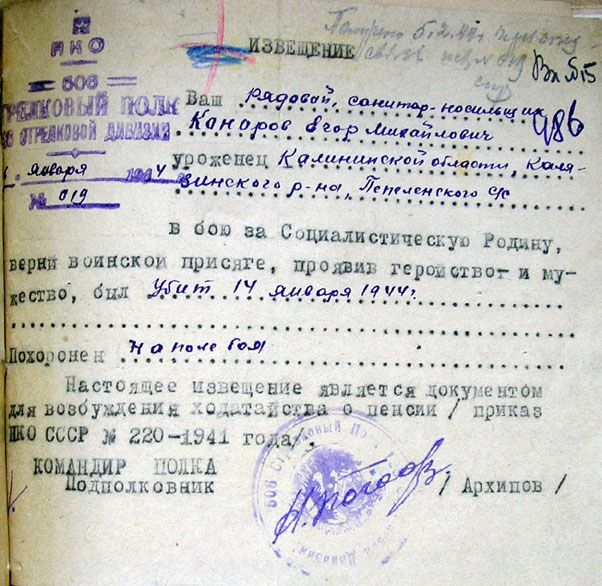 НКО
506
СТРЕЛКОВЫЙ ПОЛК
СТРЕЛКОВОЙ ДИВИЗИИ
января 1944
№ 019
ИЗВЕЩЕНИЕ
Вх №15
986
Ваш рядовой, санитар-носильщик
Канаров Егор Михайлович
уроженец Калининской области, Каля-
зинского р-на, Пепеленского с/с
в бою за Социалистическую Родину,
верни воинской присяге, проявив геройство и му-
жество, был Убит 14 января 1944г.
Похоронен На поле боя
Настоящее извещение является документом
для возбуждения ходатайства о пенсии / приказ
НКО СССР № 220-1941 года/.
КОМАНДИР ПОЛКА
Подполковник / Архипов /